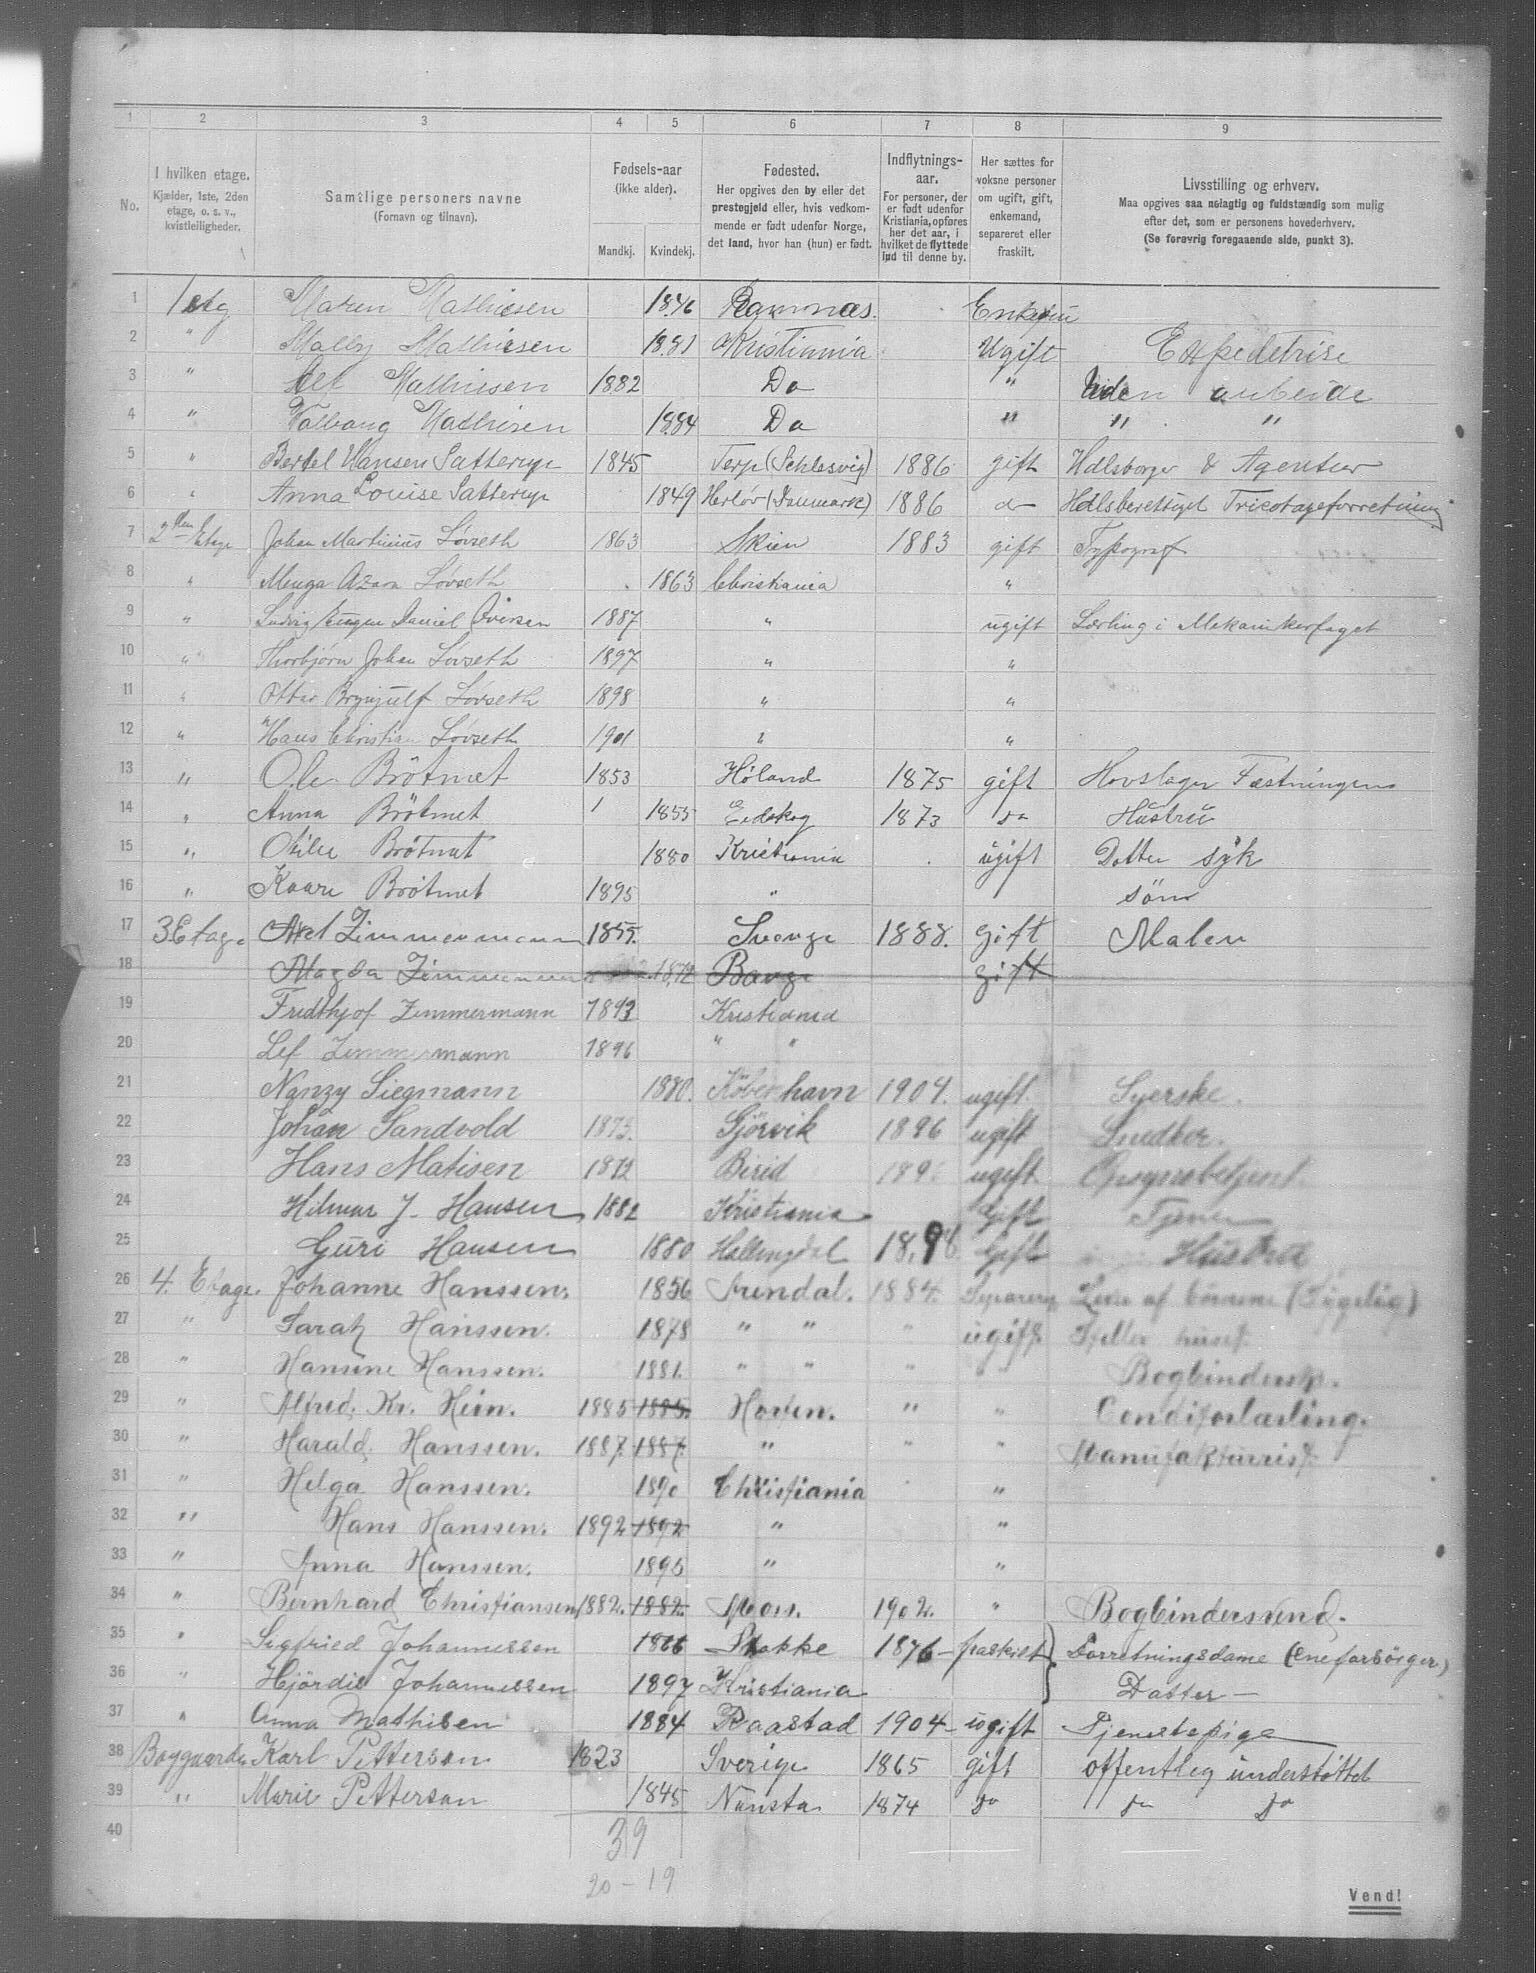 1 2 3 4 5 6 7 8 9
No. I hvilken etage. Kjælder, 1ste, 2den etage, o. s. v., kvistleiligheder. Samtlige personers navne (Fornavn og tilnavn). Fødsels-aar (ikke alder). Mandkj. Kvindekj. Fødested. Her opgives den by eller det prestegjeld eller, hvis vedkommende er født udenfor Norge, det land, hvor han (hun) er født. Indflytnings-aar. For personer, der er født udenfor Kristiania, opføres her det aar, i hvilket de flyttede ind til denne by. Her sættes for voksne personer om ugift, gift, enkemand, separeret eller fraskilt. Livsstilling og erhverv. Maa opgives saa nøiagtig og fuldstændig som mulig efter det, som er personens hovederhverv. (Se forøvrig foregaaende side, punkt 3).
1 1 etg Maren Mathiesen 1846 Ramnæs. Enkefru
2 " Mathiesen 1881 Kristiania Ugift Expeditrise
3 " Mathiesen 1882 Do " Uden arbeide
4 " Valborg Mathisen 1884 Do " " "
5 " Bertel Hansen Satterup 1845 Terp (Schlesvig) 1886 gift Hdlsborger & Agentur
6 " Anna Louise Satterup 1849 Herlöv (Danmark) 1886 do Hdlsberettiget Tricotageforretning
7 2den Etage Johan Martinius Lövseth 1863 Skien 1883 gift Typograf
8 " Azora Lövseth 1863 Christiania "
9 " Ludvig Eugen Daniel Iversen 1887 " ugift Lærling i Mekanikerfaget
10 " Thorbjörn Johan Lövseth 1897 " "
11 " Otter Brynjulf Lövseth 1898 " "
12 " Hans Christian Lövseth 1901 " "
13 " Ole Brötmet 1853 Höland 1875 gift Hovslager Fæstningen
14 " Anna Brötmet 1855 Eidskog 1873 do Hustru
15 " Otilie Brötmet 1880 Kristiania ugift Datter syk
16 " Kaare Brötmet 1895 " sön
17 3 Etage Axel Zimmermann 1855. Sverige 1888. gift Maler
18 Magda Zimmermann 1872 Borge gift
19 Fridthjof Zimmermann 1893 Kristiania
20 Leif Zimmermann 1896 " "
21 Nanzy Siegmann 1880. Köbenhavn 1904. ugift. Syerske.
22 Johan Sandvold 1873. Gjörvik 1896 ugift Snedker.
23 Hans Matisen 1872 Birid ugift Opsynsbetjent.
24 Hilmar J. Hansen 1882 Kristiania Gift Tjener
25 Guri Hansen 1880 Hallingdal 1898 Gift Hustru
26 4. Etage. Johanne Hanssen. 1856 Arendal. 1884. Separeret Lever af börnene (Sygelig)
27 " Sarah Hanssen. 1878 " " " ugift. Steller huset.
28 " Hansine Hanssen. 1881. " " " Bogbindersk.
29 " Alfred. Kr. Hein. 1885 1885. Horten. " " Conditorlærling.
30 " Harald. Hanssen. 1887. 1887. " " " Manufakturist.
31 " Helga Hanssen. 1890 Christiania "
32 " Hans Hanssen. 1892 1892 " "
33 " Anna Hanssen. 1895 " "
34 " Bernhard Christiansen 1882. 1882. Moss. 1902. " Bogbindersvend.
35 " Sigfried Johannessen 1866 Stokke 1876 – fraskilt Forretningsdame (Eneforsörger)
36 " Hjördis Johannessen 1897 Kristiania Datter –
37 " Anna Mathisen 1884 Raastad 1904 – ugift Tjenestepige
38 Baggaarden Karl Petterson 1823 Sverige 1865 gift offentleg understöttet
39 " Marie Petterson 1845 Nansta 1874 do do do
40
39
20 – 19
Vend!